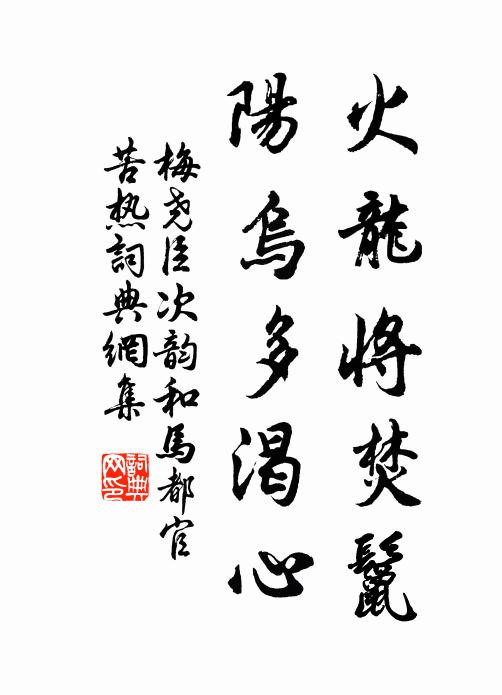 火龍將焚鬣
陽烏多渴心
梅尧臣次韵和馬都官
苦热詞典網集
詞典
网印